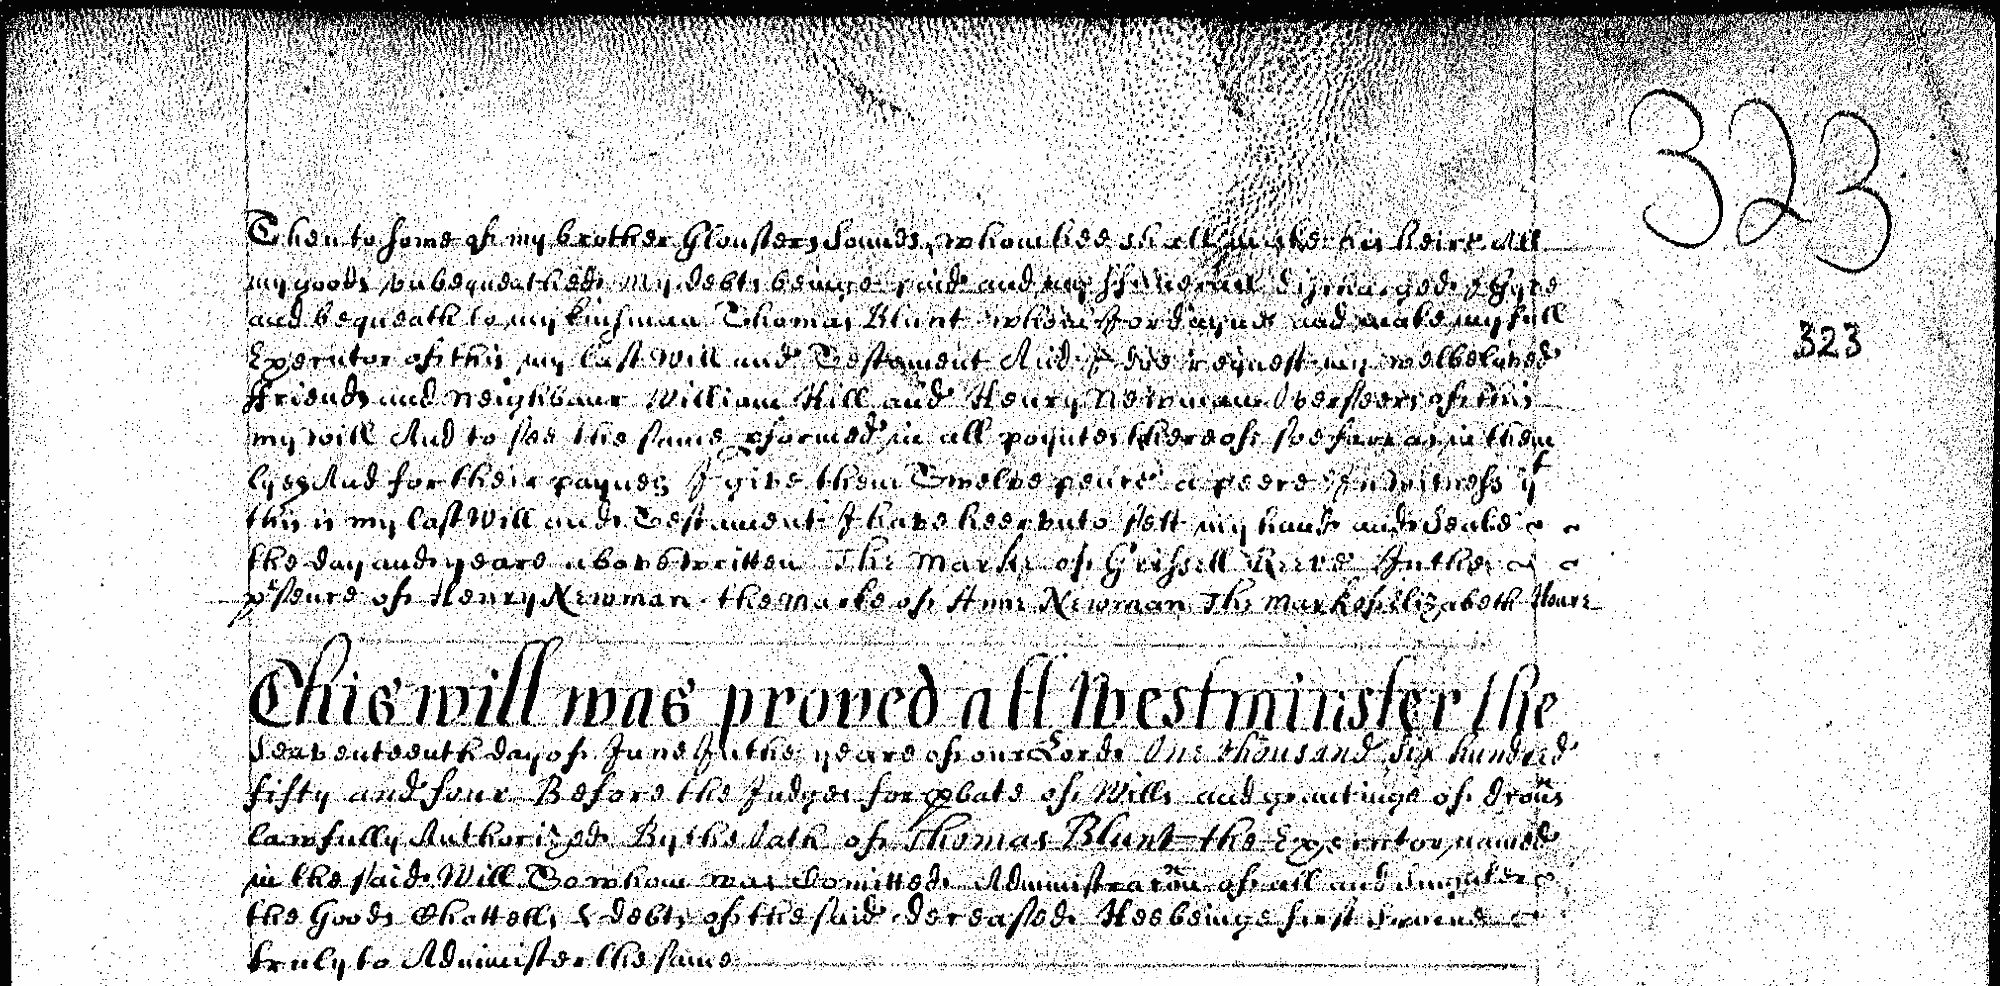 323
Then to some of my brother Glousters sonnes, whom hee shall make his heire All
my goods unbequeathed my debts beinge paid and my ffunerall discharged I give
and bequeath to my kinsman Thomas Blunt whom I ordayne and make my full
Executor of this my last Will and Testament And I doe request my welbeloved
ffriends and neighbour William Hill and Henry Newman Overseers of this
my will And to see the same pformed in all poyntes thereof soe farr as in them
lyes And for their paynes I give them Twelve pence a peece In witness yt
this is my last Will and Testament I have heerunto sett my hand and Seale
the day and yeare above written The Marke of Grissell Reeve In the
pʳsence of Henry Newman the marke of Ann Newman The marke of Elizabeth
323
This will was proved att Westminster the
Seaventeenth day of June In the yeare of our Lord One thousand six hundred
fifty and four Before the Judges for pbate of Wills and grantinge of Admons
lawfully Authorized By the Oath of Thomas Blunt the Executor named
in the said Will To whom was Comitted Administracon of all and singuler
the Goods Chattells & debts of the said deceased Hee beinge first sworne
truly to Administer the same